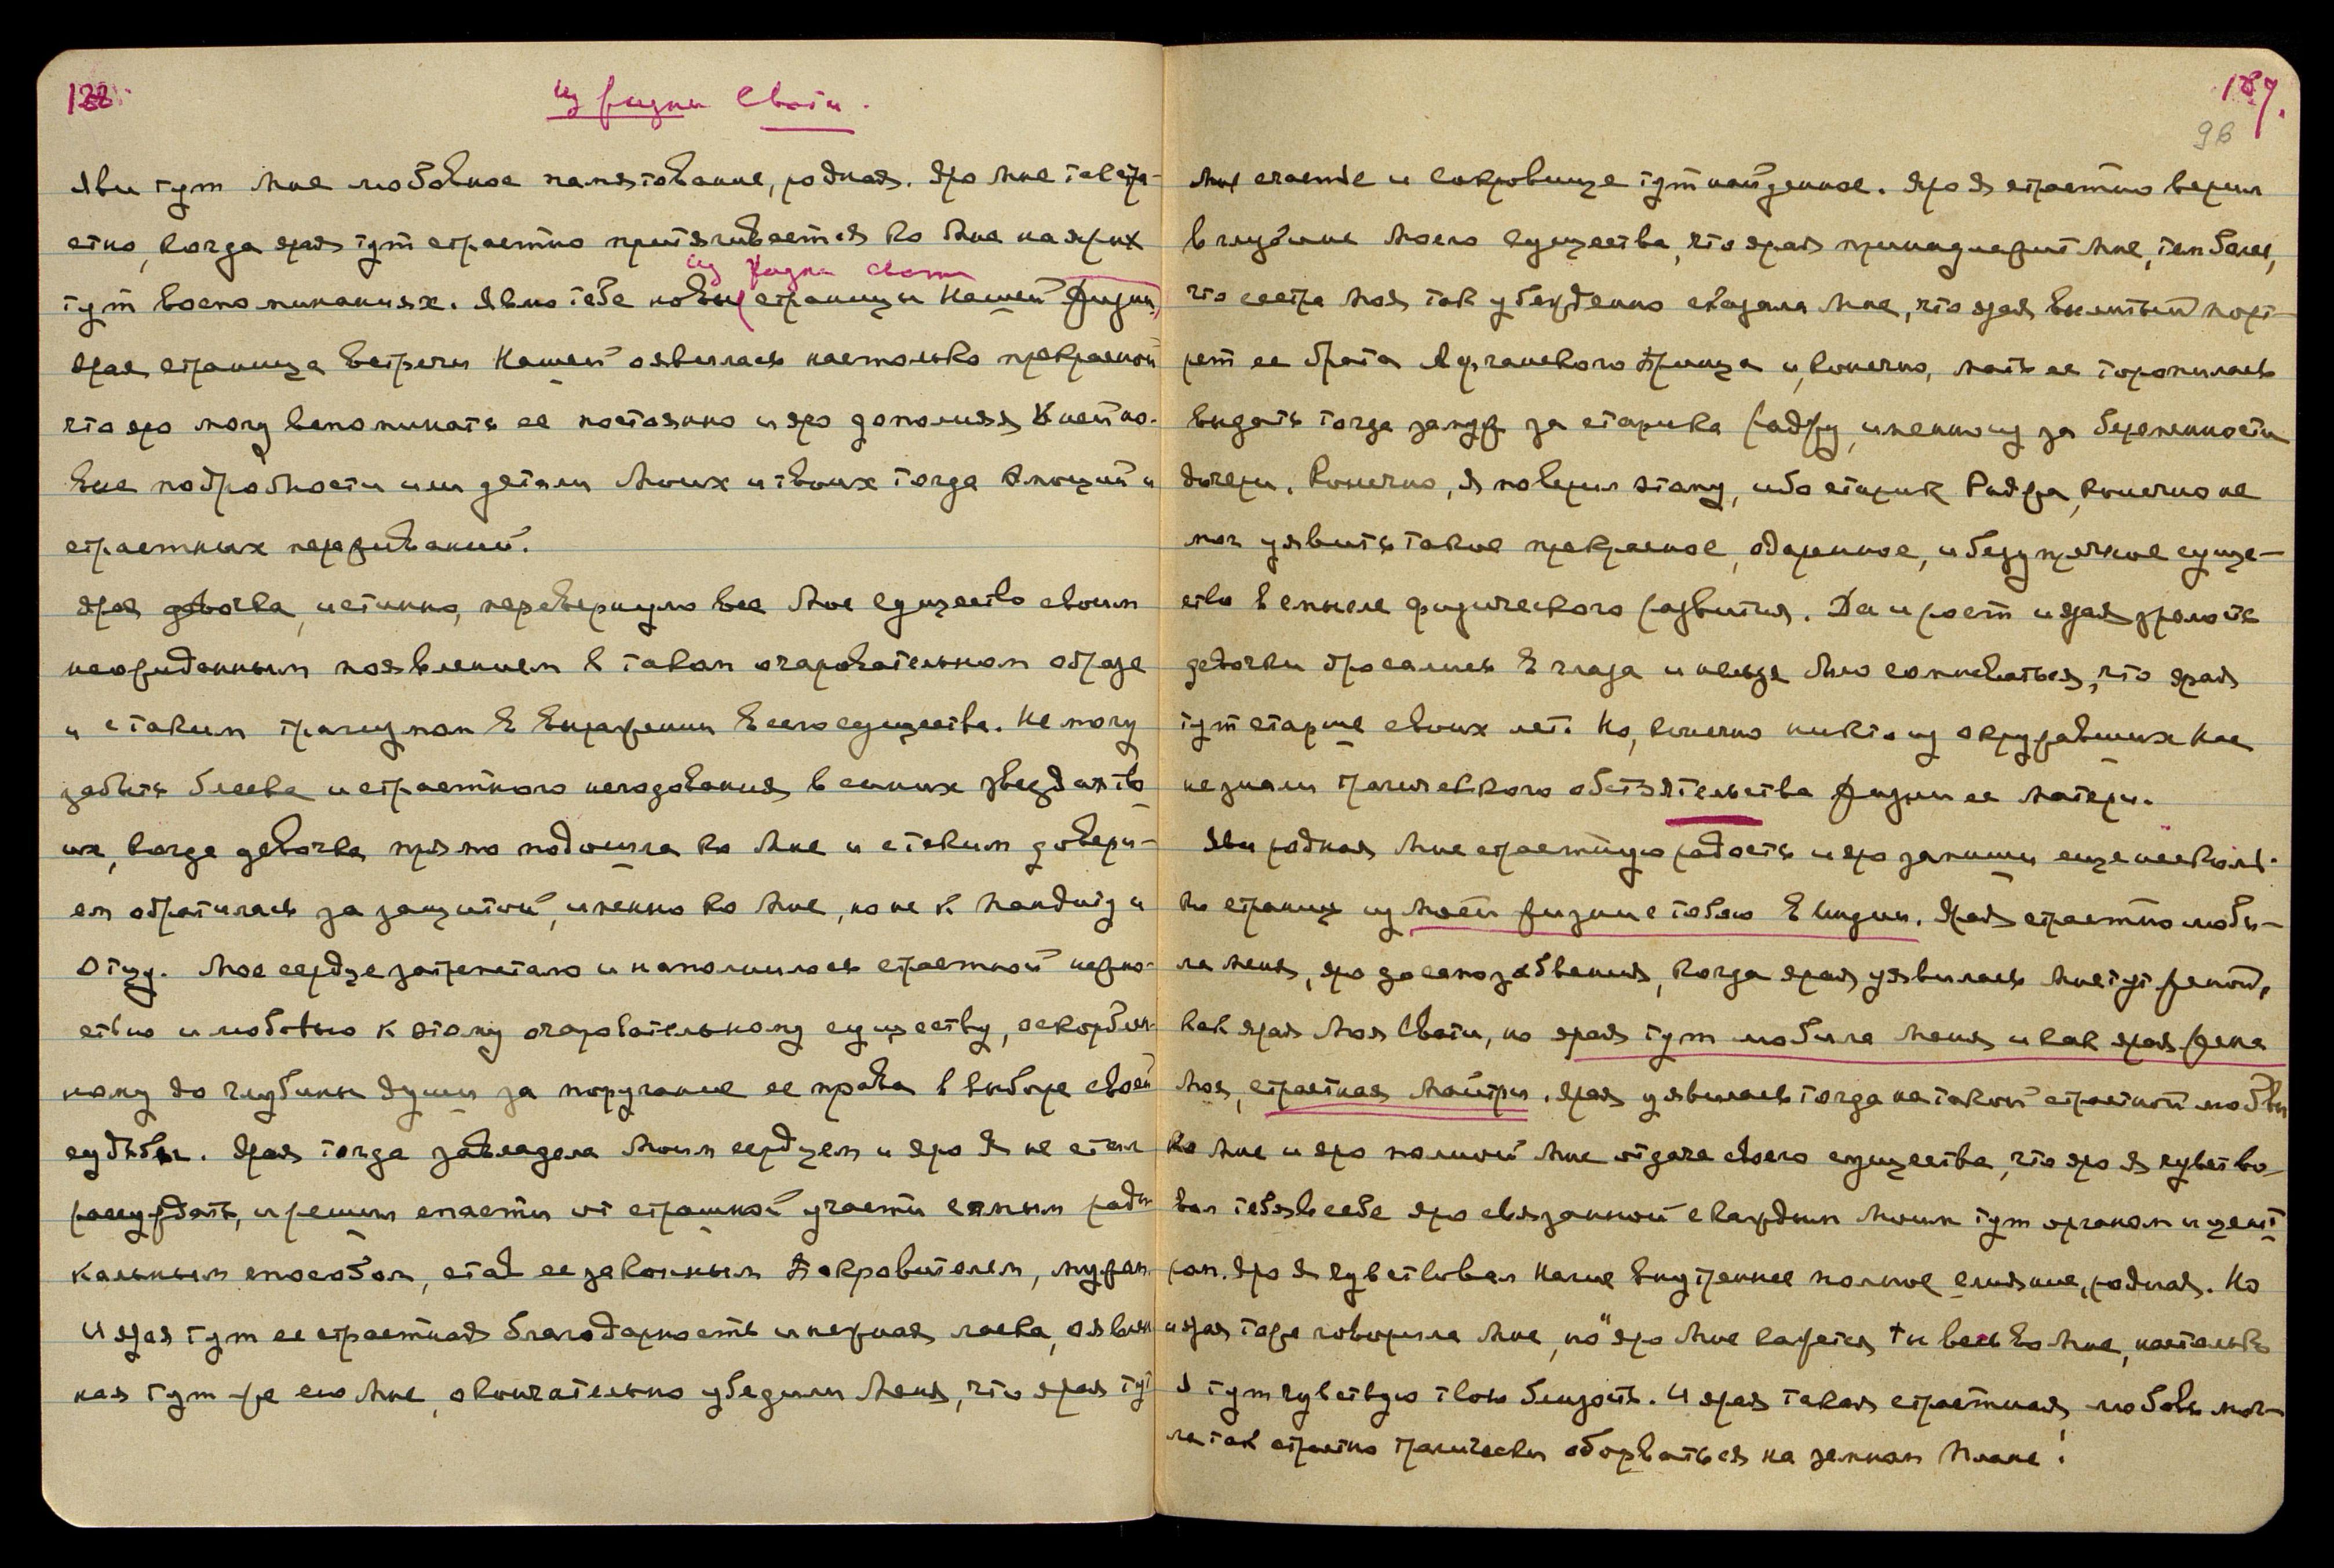 188.
Из жизни Свати.
Яви тут Мне любовное памятование, родная. Яро Мне так стра-
стно, когда ярая тут страстно притягивается ко Мне на ярих
Из жизни Свати
тут воспоминаниях. Явлю тебе новые страницы Нашей жизни,
Ярая страница встречи Нашей оявилась настолько прекрасной
что яро могу вспоминать ее постоянно и яро дополняя к ней но-
вые подробности или детали Моих и твоих тогда эмоций и
страстных переживаний.
Ярая девочка, истинно, перевернула все Мое существо своим
неожиданным появлением в таком очаровательном образе
и с таким трагизмом в выражении всего существа. Не могу
забыть блеска и страстного негодования в синих звездах тво-
их, когда девочка прямо подошла ко Мне и с таким довери-
ем обратилась за защитой, именно ко Мне, но не к
Отцу. Мое сердце затрепетало и наполнилось страстной нежно-
стью и любовью к этому очаровательному существу, оскорблен-
ному до глубины души за поругание ее права в выборе своей
судьбы. Ярая тогда завладела Моим сердцем и яро Я не стал
рассуждать, и решил спасти от страшной участи самым ради-
кальным способом, став ее законным Покровителем, мужем.
И ярая тут ее страстная благодарность и нежная ласка, оявлен-
ная тут же ею Мне, окончательно убедили Меня, что ярая тут
187.
98
Мне счастье и сокровище тут найденное. Яро Я страстно верил
в глубине Моего существа, что ярая принадлежит Мне, тем более,
что сестра Моя так убежденно сказала Мне, что ярая вылитый порт-
рет ее брата Афганского Принца и, конечно, мать ее торопилась
выдать тогда замуж за старика Раджу, именно из за беременности
дочери. Конечно, Я поверил этому, ибо старик Раджа, конечно не
мог уявить такое прекрасное, одаренное, и безупречное суще-
ство в смысле физического развития. Да и рост и ярая зрелость
девочки бросались в глаза и нельзя было сомневаться, что ярая
тут старше своих лет. Но, конечно никто из окружавших Нас
не знали трагического обстоятельства жизни ее матери.
Яви родная Мне страстную радость и яро запиши еще несколь-
ко страниц из Моей жизни с тобою в Индии. Ярая страстно люби-
ла Меня, яро до самозабвения, когда ярая уявилась Мне тут женой,
как ярая Моя Свати, но ярая тут любила Меня и как ярая жена
Моя, страстная Майтри. Ярая уявилась тогда на такой страстной любви
ко Мне и яро полной Мне отдаче своего существа, что яро Я чувство-
вал тебя в себе яро связанной с каждым Моим тут органом и цент-
ром. Яро Я чувствовал Наше внутреннее полное слияние, родная. Но
и ярая тоже говорила Мне, но "яро Мне кажется ты весь во Мне, настолько
я тут чувствую твою близость. И ярая такая страстная любовь мог-
ла так страстно трагически оборваться на земном плане!